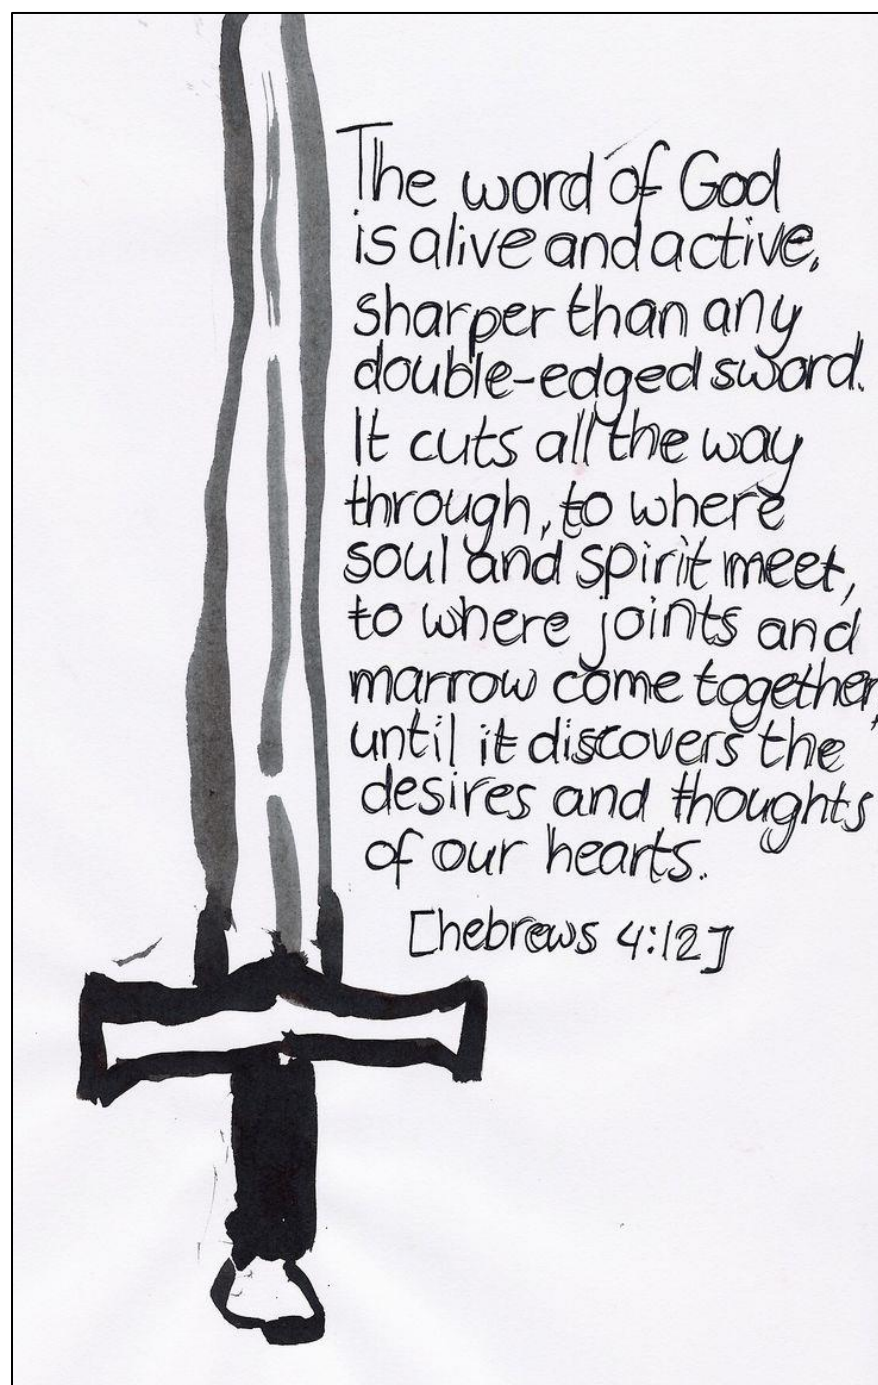 The word of God
is alive and active,
sharper than any
double-edged sword.
It cuts all the way
through, to where
soul and spirit meet,
to where joints and
marrow come together,
until it discovers the
desires and thoughts
of our hearts.
[hebrews 4:12]